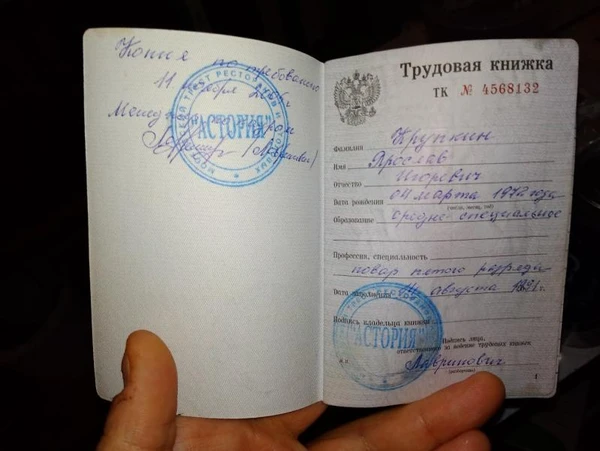 Копия по требованию
11 ноября
Менеджер
"АСТОРИЯ"
Трудовая книжка
ТК № 4568132
Фамилия Крупкин
Имя Ярослав
Отчество Игоревич
Дата рождения 04 марта 1972 года
(число, месяц, год)
Образование средне-специальное
Профессия, специальность
повар пятого разряда
Дата заполнения августа
Подпись владельца книжки
Подпись лица,
ответственного за ведение трудовых книжек
М.П. Лавринович
"АСТОРИЯ"
1